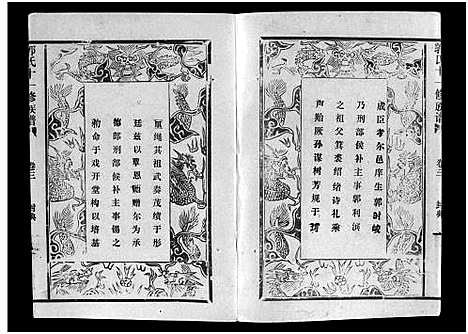 郭氏十一修族谱
卷三
封典
成臣孝尔邑庠生郭时
乃刑部候补主事郭利滨
之祖父箕裘绍绪诗礼乘
声贻厥孙谋树芳规于
重绳其祖武奏茂绩于彤
廷兹以覃恩贻赠尔为承
德郎刑部候补主事锡之
勅命于戏开堂构以培基
郭氏十一修族谱
卷三
封典